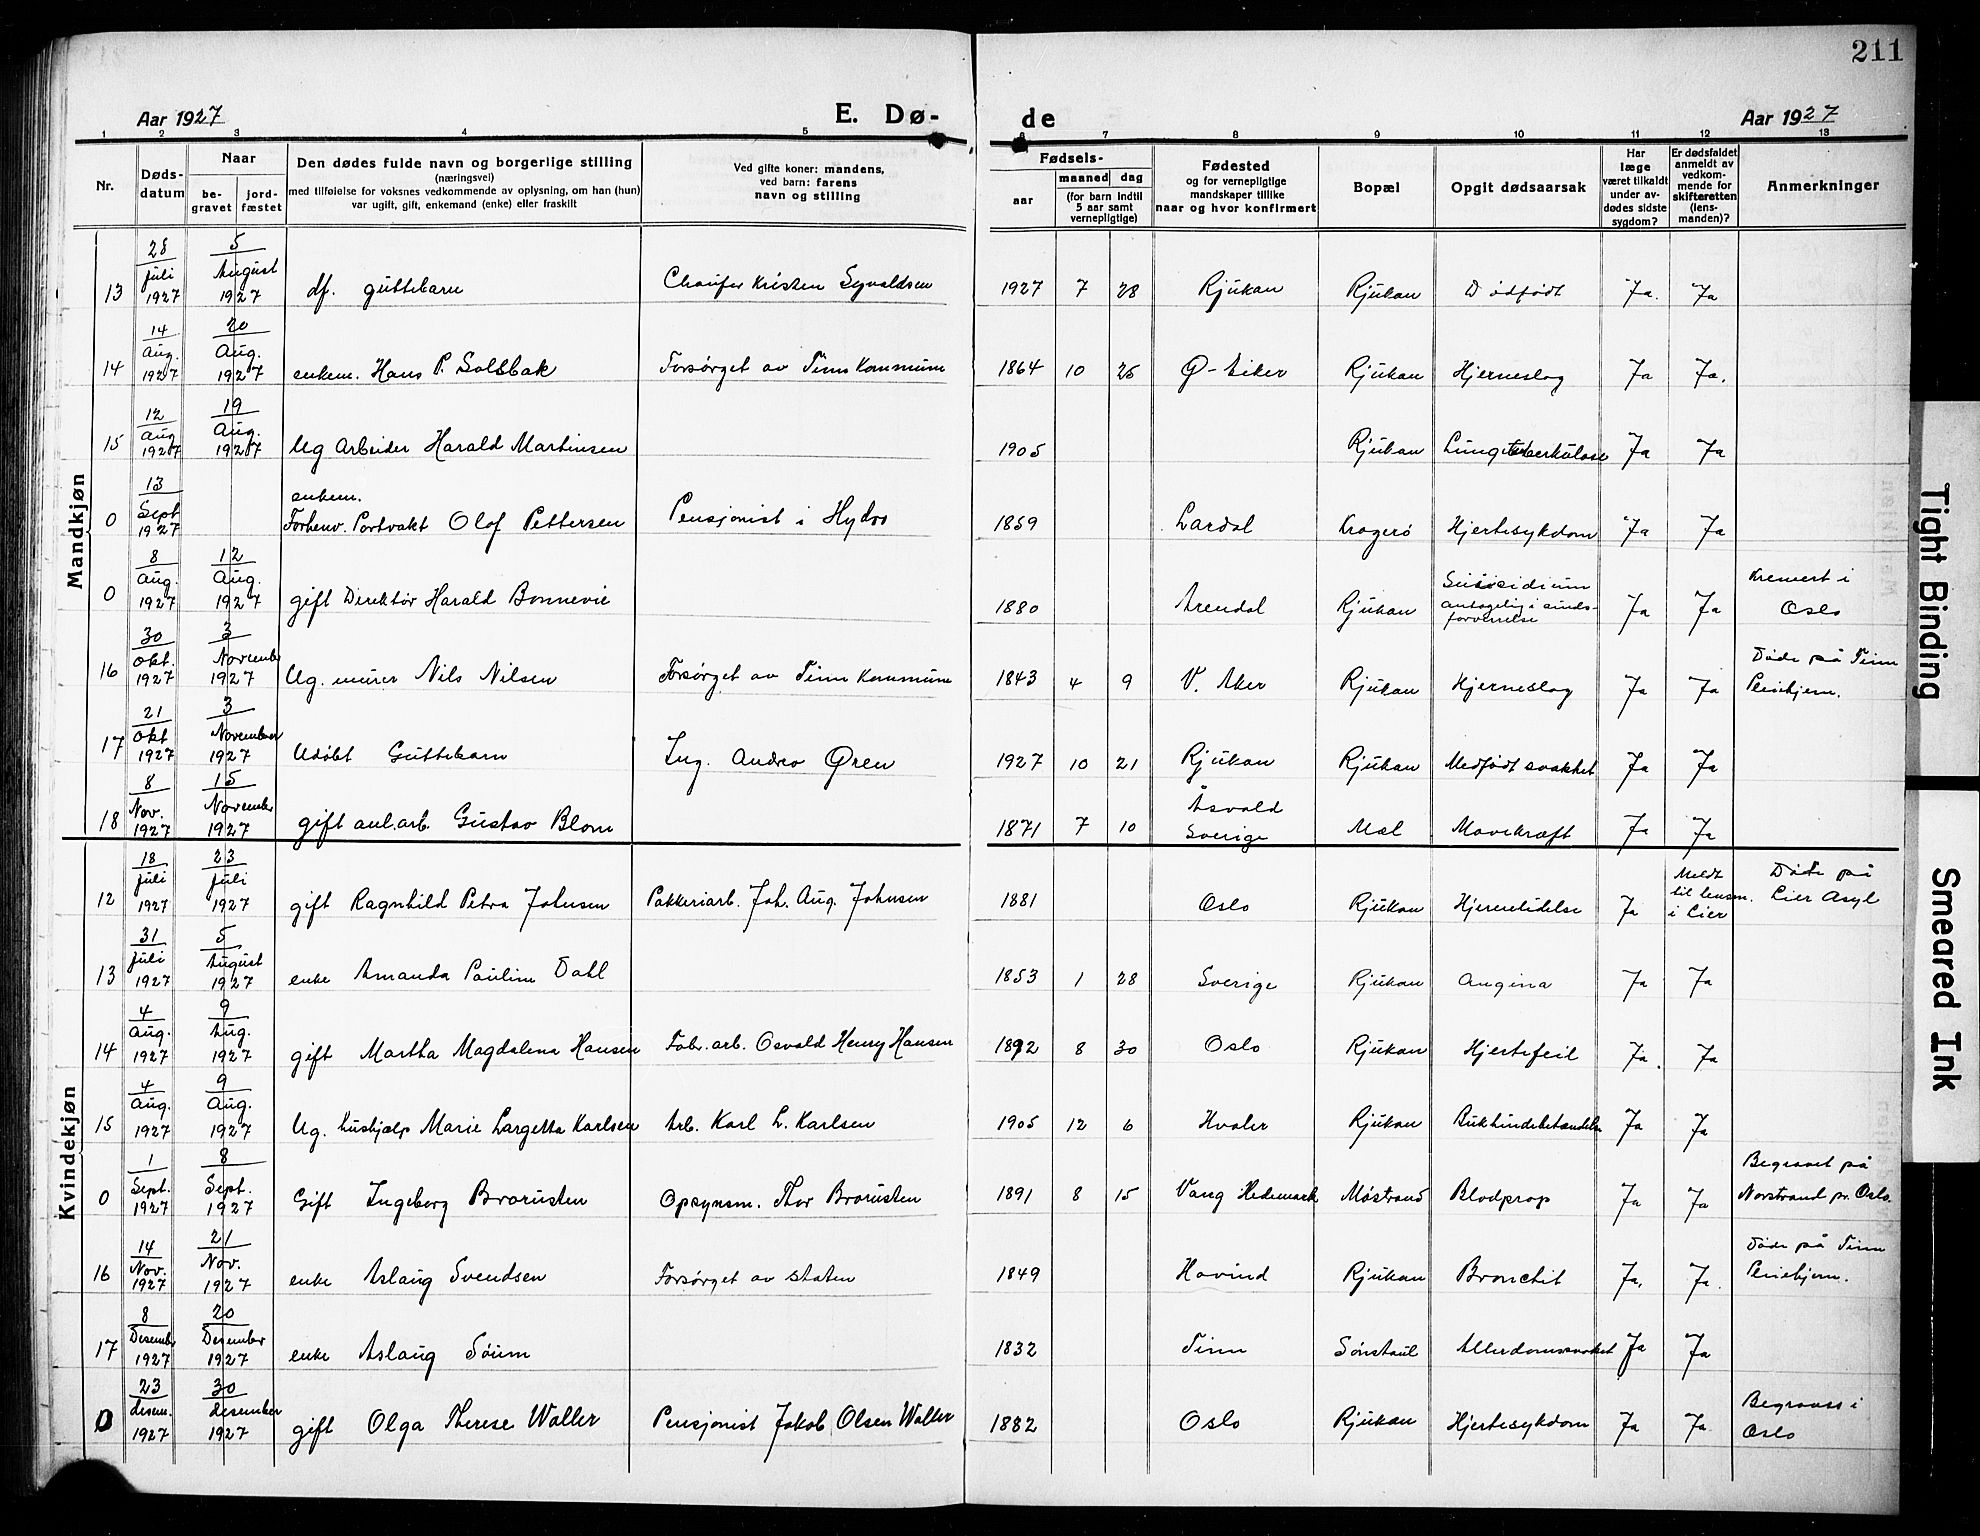 211
Aar 1927 E. Dø- de Aar 1927
1 2 3 4 5 6 7 8 9 10 11 12 13
Nr. Dødsdatum Naar begravet jordfæstet
Den dødes fulde navn og borgerlige stilling
(næringsvei)
med tilføielse for voksnes vedkommende av oplysning, om han (hun)
var ugift, gift, enkemand (enke) eller fraskilt
Ved gifte koner: mandens,
ved barn: farens
navn og stilling
Fødsels-
aar maaned dag
(for barn indtil
5 aar samt
vernepligtige)
Fødested
og for vernepligtige
mandskaper tillike
naar og hvor konfirmert
Bopæl
Opgit dødsaarsak
Har
læge
været tilkaldt
under av-
dødes sidste
sygdom?
Er dødsfaldet
anmeldt av
vedkom-
mende for
skifteretten
(lens-
manden)?
Anmerkninger
Mandkjøn
13 28 juli 1927 5 August 1927 df. guttebarn Chaufør Kristen Syvaldsen 1927 7 28 Rjukan Rjukan Dødfødt Ja. Ja
14 14 Aug. 1927 20 Aug. 1927 enkem. Hans P. Solbak Forsørget av Tinn Kommune 1864 10 26 Ø-Eiker Rjukan Hjerneslag Ja Ja.
15 12 Aug 1927 19 Aug. 1927 Ug Arbeider Harald Martinsen 1905 Rjukan Lungetuberkulose Ja Ja
0 13 Sept 1927 enkem. Forhenv. Portvakt Olof Pettersen Pensjonist i Hydro 1859 Lardal Kragerø Hjertesykdom Ja Ja
0 8 Aug. 1927 12 Aug. 1927 gift Direktør Harald Bonnevie 1880 Arendal Rjukan Suisidium antagelig i sinds-forvirrelse Ja Ja Kremert i Oslo
16 30 Okt. 1927 3 November 1927 Ug. murer Nils Nilsen Forsørget av Tinn Kommune 1843 4 9 V. Aker Rjukan Hjerneslag Ja Ja Døde på Tinn Pleiehjem.
17 21 Okt 1927 3 November 1927 Udøbt Guttebarn Ing. Andreo Øren 1927 10 21 Rjukan Rjukan Medfødt svakhet Ja Ja
18 8 Nov. 1927 15 November 1927 gift anl.arb. Gustav Blom 1871 7 10 Åsvald Sverige Mæl Mavekræft Ja Ja
Kvindekjøn
12 18 juli 1927 23 juli 1927 gift Ragnhild Petra Johnsen Pakkeriarb. Joh. Aug. Johnsen 1881 Oslo Rjukan Hjernelidelse Ja Meldt til lensm. i Lier Døde på Lier Asyl
13 31 juli 1927 5 August 1927 enke Amanda Paulin Dahl 1853 1 28 Sverige Rjukan Angina Ja Ja
14 4 Aug. 1927 9 Aug. 1927 gift Martha Magdalena Hansen Fabr. arb. Osvald Henry Hansen 1892 8 30 Oslo Rjukan Hjertefeil Ja. Ja
15 4 Aug. 1927 9 Aug. 1927 Ug. hushjælp Marie Largetta Karlsen Arb. Karl L. Karlsen 1905 12 6 Hvaler Rjukan Bukhindebetændelse Ja Ja
0 1 Sept. 1927 8 Sept. 1927 Gift Ingeborg Brorusten Opsynsm. Thor Brorusten 1891 8 15 Vang Hedemark Møstrand Blodprop Ja Ja Begravet på Norstrand pr. Oslo.
16 14 Nov. 1927 21 Nov. 1927 enke Aslaug Svendsen Forsørget av Staten 1849 Hovind Rjukan Bronchit Ja. Ja. Døde på Tinn Pleiehjem.
17 8 Desember 1927 20 Desember 1927 enke Aslaug Søum 1832 Tinn Sønstaul Allerdomssvakhet Ja Ja
0 23 Desem. 1927 30 desember 1927 gift Olga Therese Waller Pensjonist Jakob Olsen Waller 1882 Oslo Rjukan Hjertesykdom Ja Ja Begravss i Oslo
Tight Binding
Smeared Ink